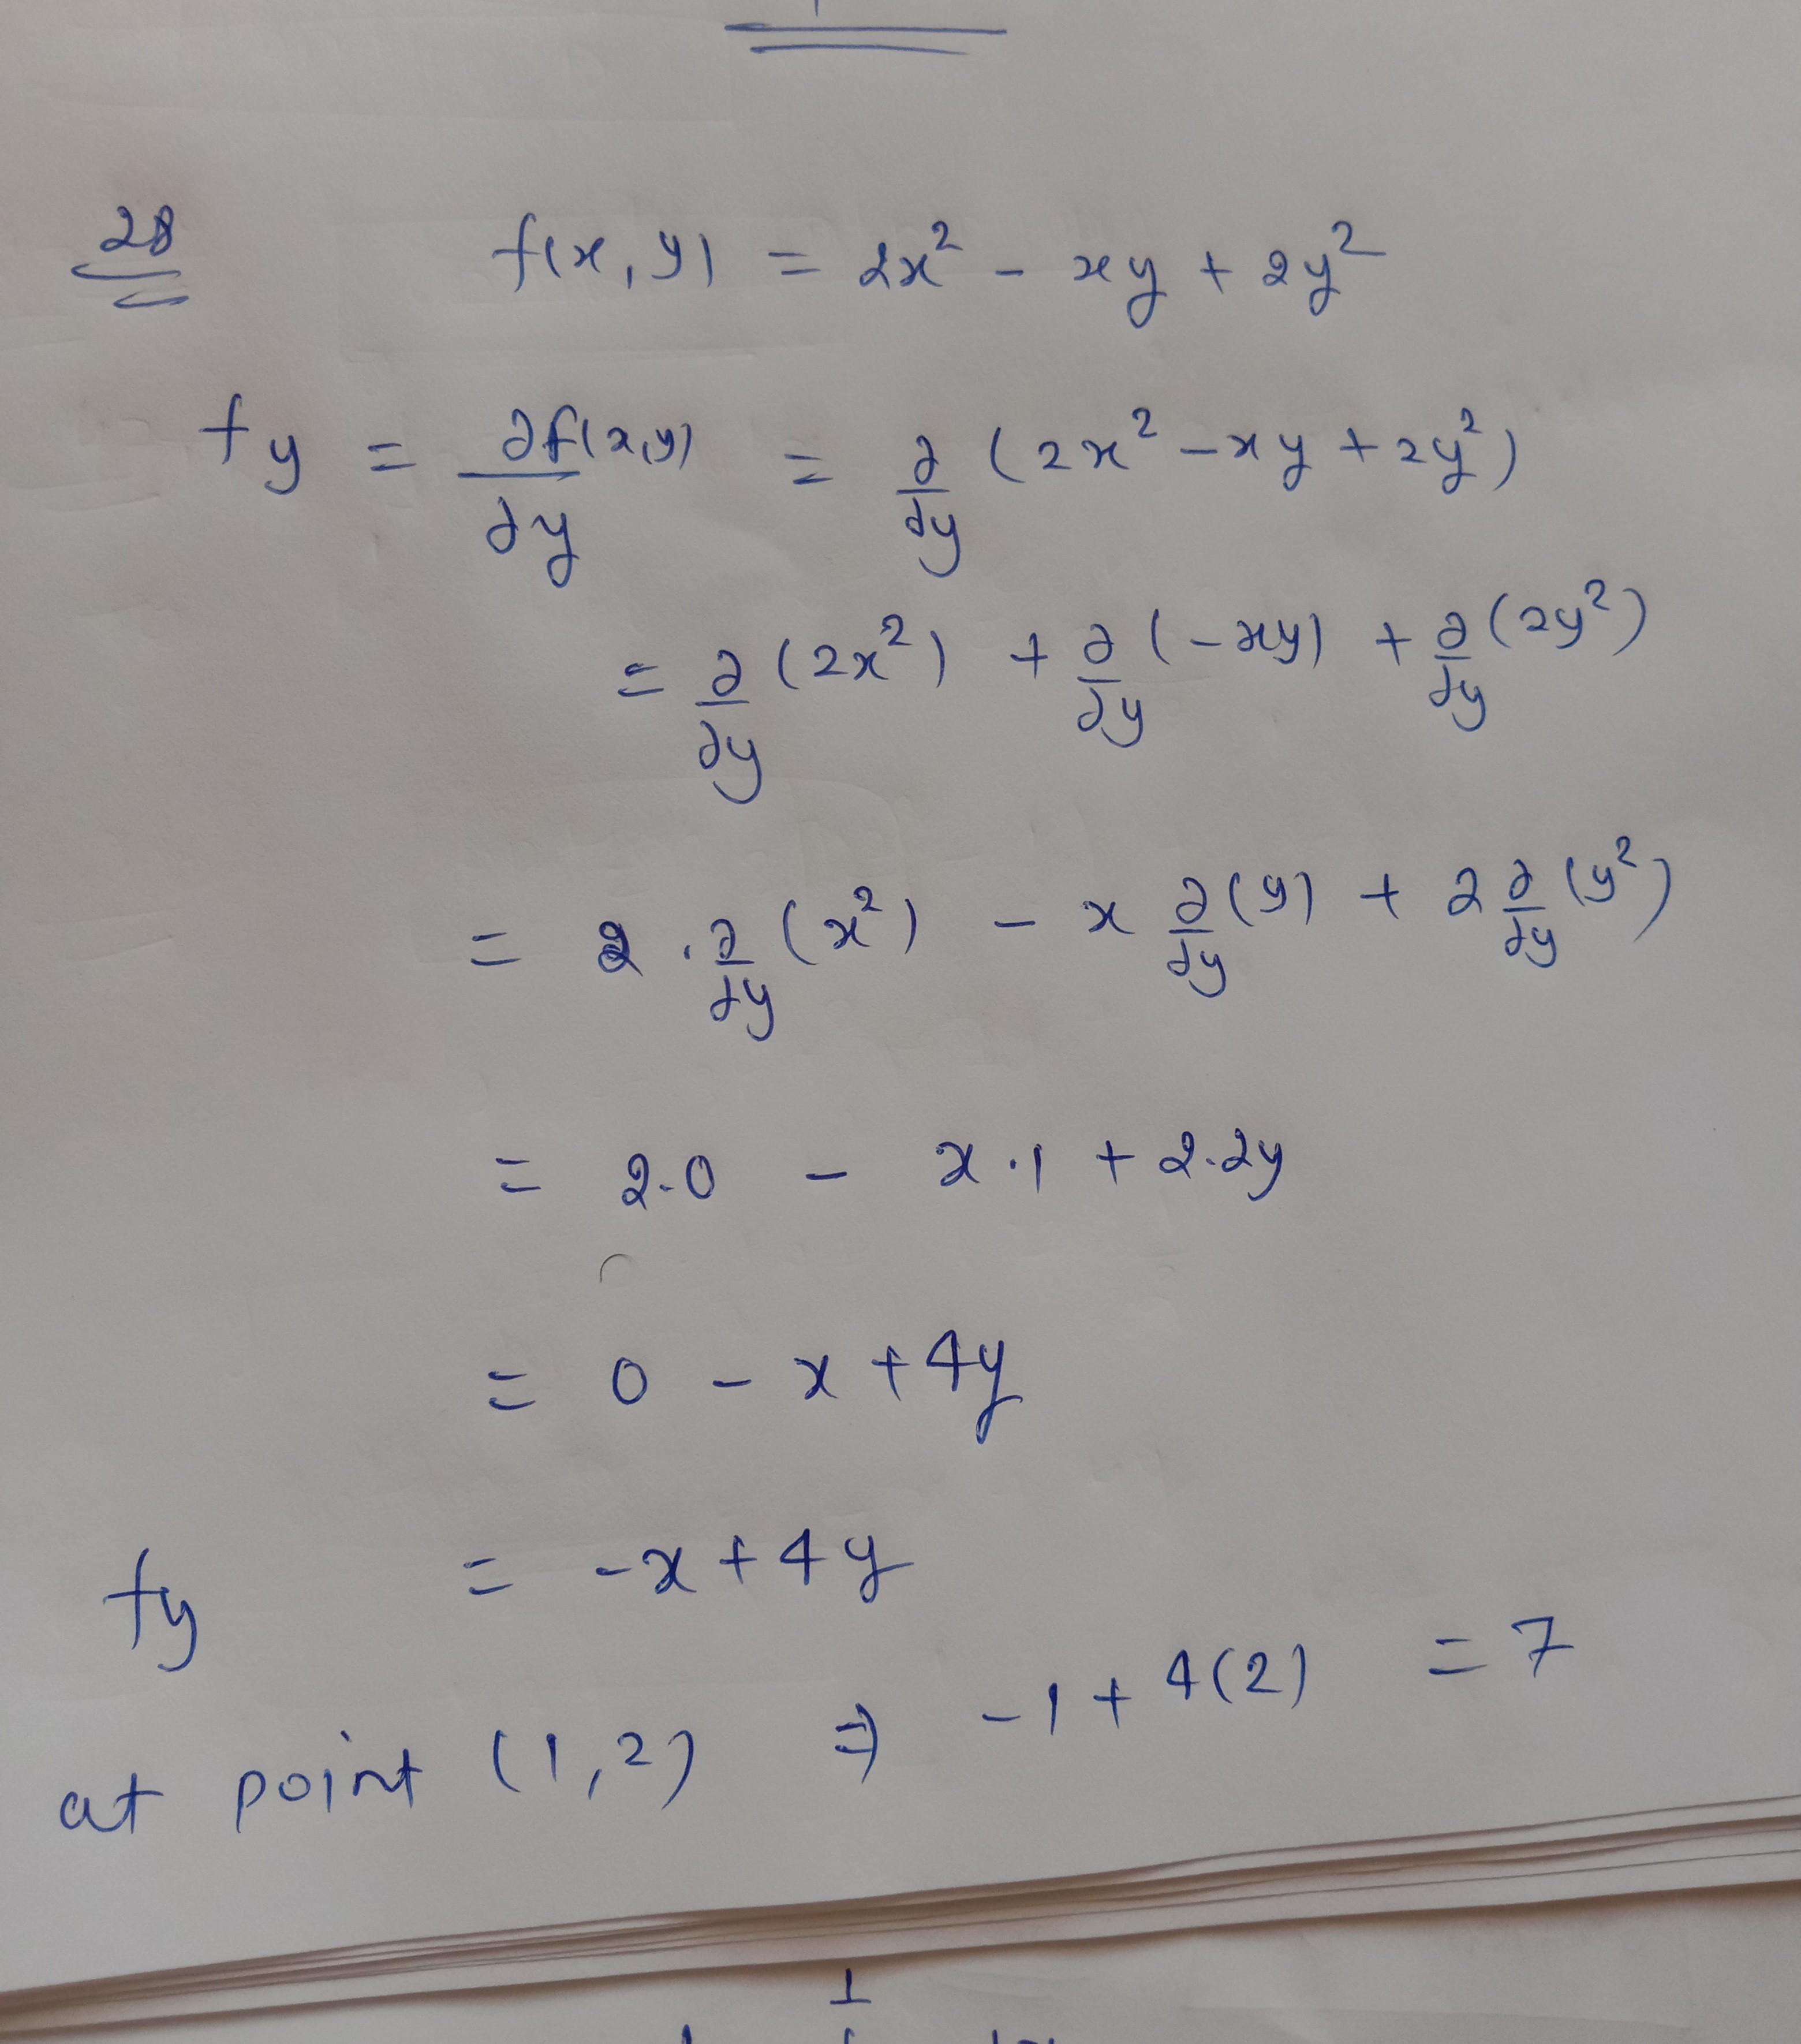 28 f(x,y) = 2x² - xy + 2y²
fy = ∂f(x,y)/∂y = ∂/∂y (2x² - xy + 2y²)
= ∂/∂y (2x²) + ∂/∂y (-xy) + ∂/∂y (2y²)
= 2 · ∂/∂y (x²) - x ∂/∂y (y) + 2 ∂/∂y (y²)
= 2.0 - x.1 + 2.2y
= 0 - x + 4y
fy = -x + 4y
at point (1,2) ⇒ -1 + 4(2) = 7